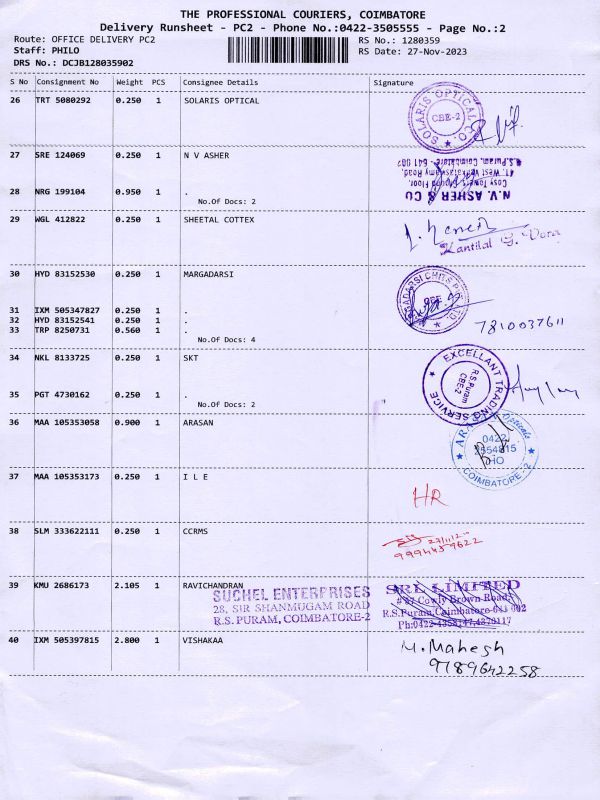 THE PROFESSIONAL COURIERS, COIMBATORE
Delivery Runsheet - PC2 - Phone No.:0422-3505555 - Page No.:2
Route: OFFICE DELIVERY PC2 RS No.: 1280359
Staff: PHILO RS Date: 27-Nov-2023
DRS No.: DCJB128035902
S No Consignment No Weight PCS Consignee Details Signature
26 TRT 5080292 0.250 1 SOLARIS OPTICAL
SOLARIS OPTICAL CO.
CBE-2
27 SRE 124069 0.250 1 N V ASHER
28 NRG 199104 0.950 1 .
No.Of Docs: 2
N.V. ASHER & CO
Cosy Towers Ground Floor,
41, West Venkataswamy Road,
R.S.Puram, Coimbatore - 641 002
29 WGL 412822 0.250 1 SHEETAL COTTEX
Kantilal G. Vora
30 HYD 83152530 0.250 1 MARGADARSI
31 IXM 505347827 0.250 1 .
32 HYD 83152541 0.250 1 .
33 TRP 8250731 0.560 1 .
No.Of Docs: 4
7810037611
34 NKL 8133725 0.250 1 SKT
35 PGT 4730162 0.250 1 .
No.Of Docs: 2
EXCELLANT TRADING SERVICE
R.S.Puram
CBE-2
36 MAA 105353058 0.900 1 ARASAN
Opticals
0422
2554815
HO
COIMBATORE - 2
37 MAA 105353173 0.250 1 I L E
HR
38 SLM 333622111 0.250 1 CCRMS
9994459622
39 KMU 2686173 2.105 1 RAVICHANDRAN
SUCHEL ENTERPRISES
28, SIR SHANMUGAM ROAD
R.S. PURAM, COIMBATORE-2
SRL LIMITED
Cowly Brown Road,
R.S.Puram, Coimbatore-641 002
40 IXM 505397815 2.800 1 VISHAKAA
M. Mahesh
9789642258